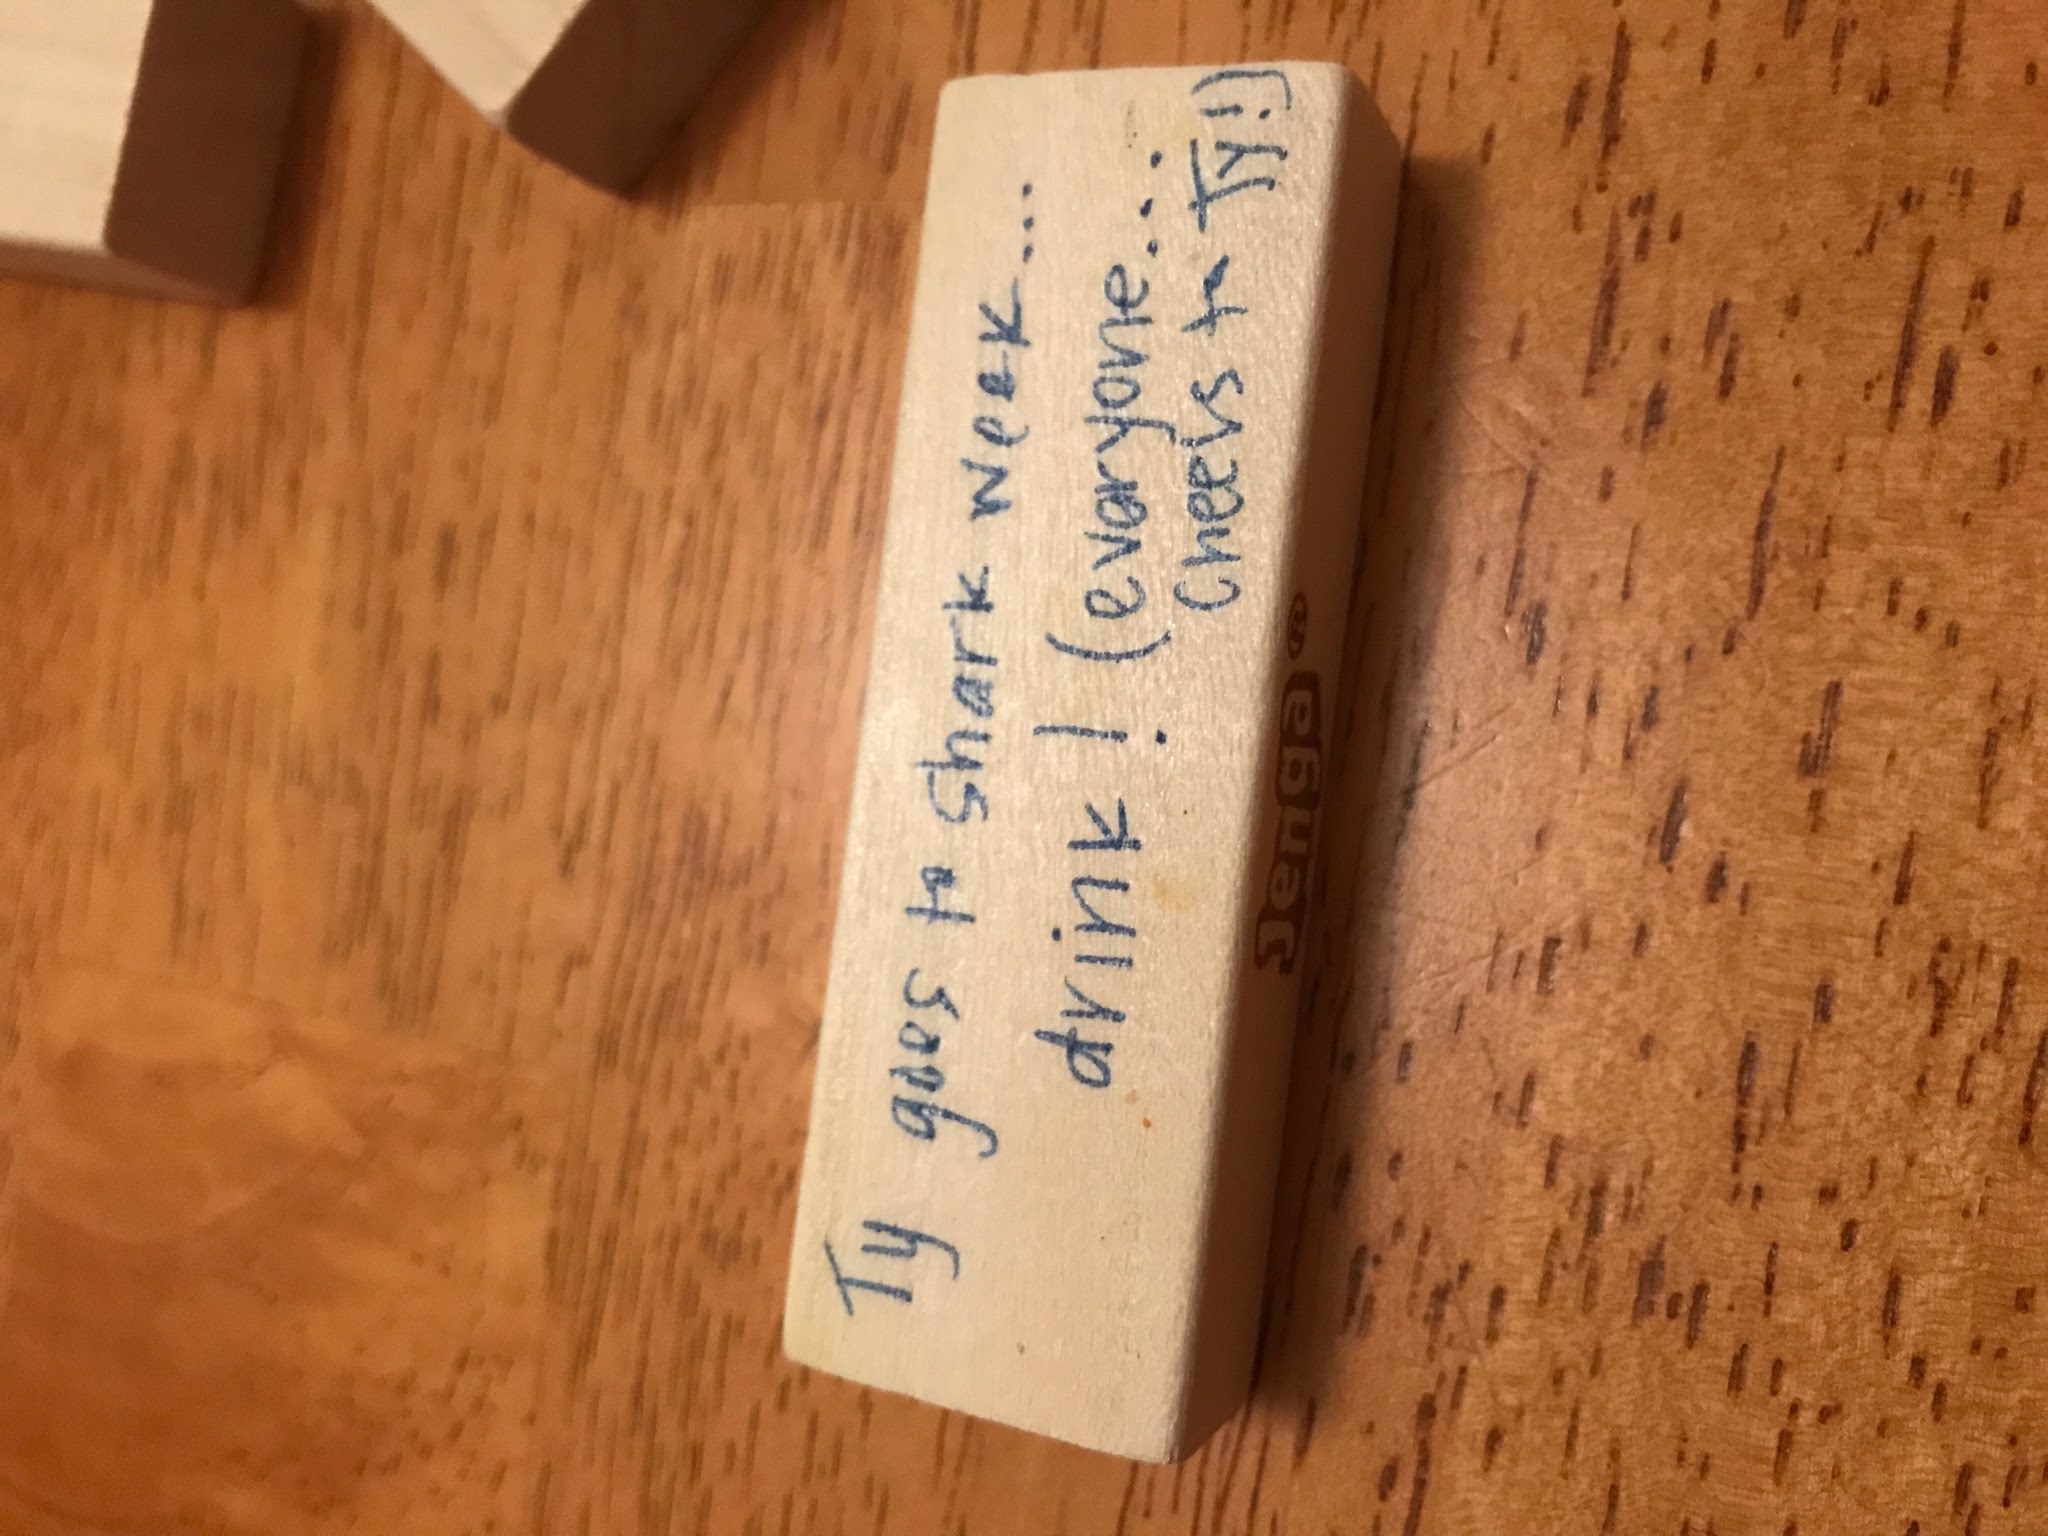 Ty goes to shark week....
drink! (everyone...
cheers to Ty!)
Jenga®